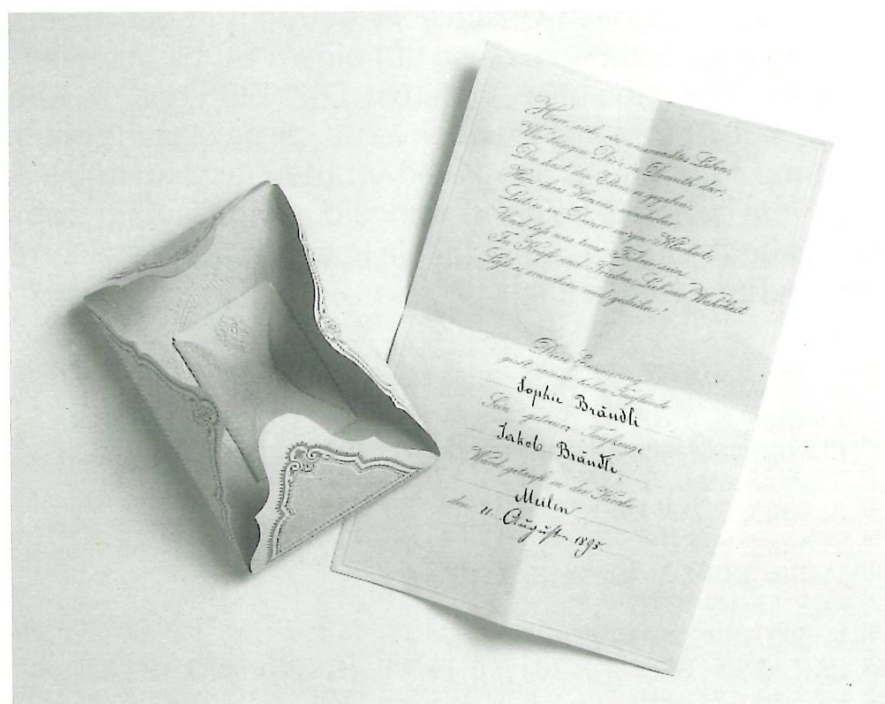 Herr, sieh, ein neuerwachtes Leben,
Wir bringen Dir's in Demuth dar;
Du hast den Eltern es gegeben,
Leit es in Deiner ewgen Klarheit,
Und laß uns treue Führer sein,
In Kraft und Frieden, Lieb und Wahrheit
Laß es erwachen und gedeihn!
Diese Erinnerung
giebt seinem lieben Taufkinde
Sophie Brändli
Sein getreuer Taufzeuge
Jakob Brändli,
Ward getauft in der Kirche
Meilen
den 11. August 1895